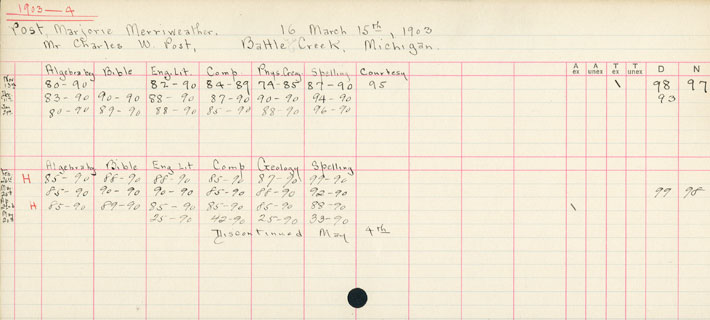 1903-4
Post, Marjorie Merriweather. 16 March 15th, 1903
Mr Charles W. Post, Battle Creek, Michigan.
Algebra by Bible Eng. Lit. Comp Phys. Geog. Spelling Courtesy A ex A unex T ex T unex D N
80-90 82-90 84-89 79-85 87-90 95 \ 98 97
83-90 90-90 88-90 87-90 90-90 94-90 93
80-90 89-90 88-90 85-90 88-90 96-90
Algebra by Bible Eng Lit Comp Geology Spelling
H 85-90 88-90 88-90 85-90 87-90 99-90
85-90 90-90 90-90 85-90 88-90 92-90 99 98
H 85-90 89-90 85-90 85-90 85-90 88-90 \
25-90 42-90 25-90 33-90
Discontinued May 4th